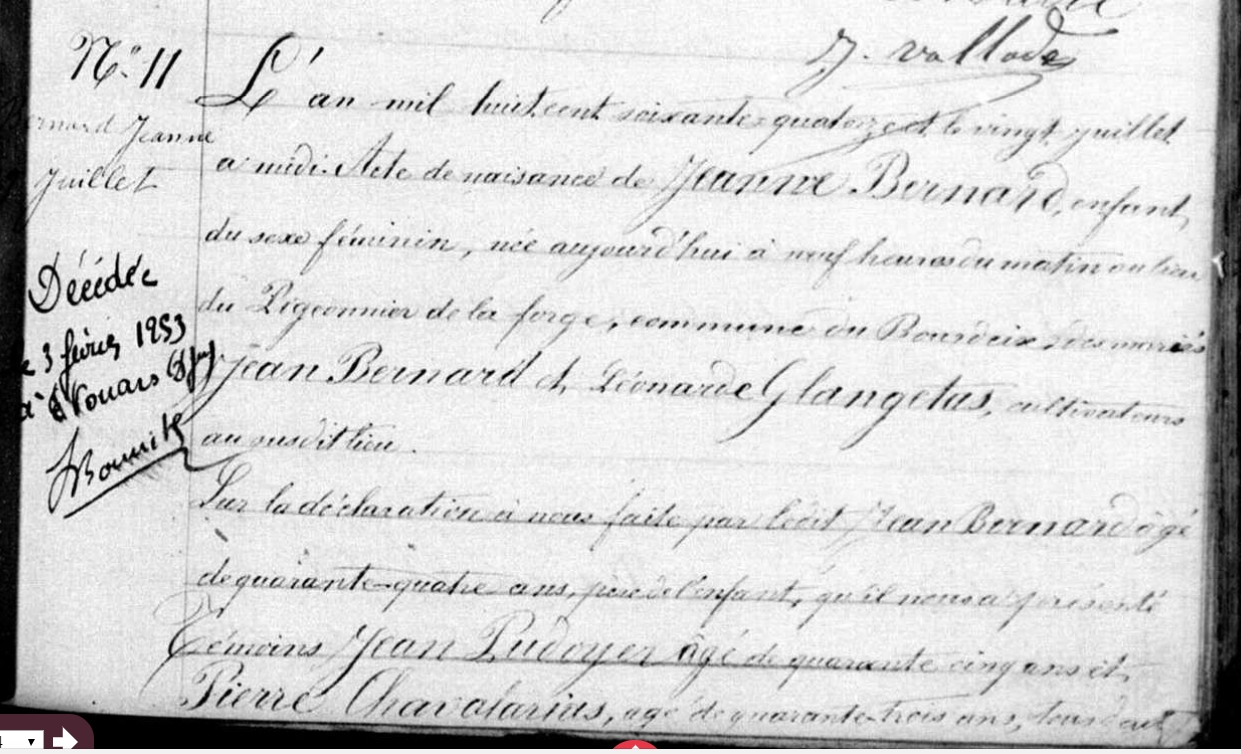 J. vallade
N° 11
ernard Jeanne
Juillet
Décédée
le 3 février 1953
à
L'an mil huit cent soixante quatorze et le vingt juillet
a midi. Acte de naisance de Jeanne Bernard, enfant,
du sexe féminin, née aujourd'hui à neuf heures du matin au lieu
du Pigeonnier de la forge, commune du Bourdeix, des mariés
Jean Bernard et Léonarde Glangetas, cultivateurs
au susdit lieu.
Sur la déclaration à nous faite par ledit Jean Bernard âgé
de quarante-quatre ans, père de l'enfant, qu'il nous a présenté
Témoins Jean Pudoyer âgé de quarante cinq ans et,
Pierre Chavalarias, agé de quarante-trois ans, tous deux